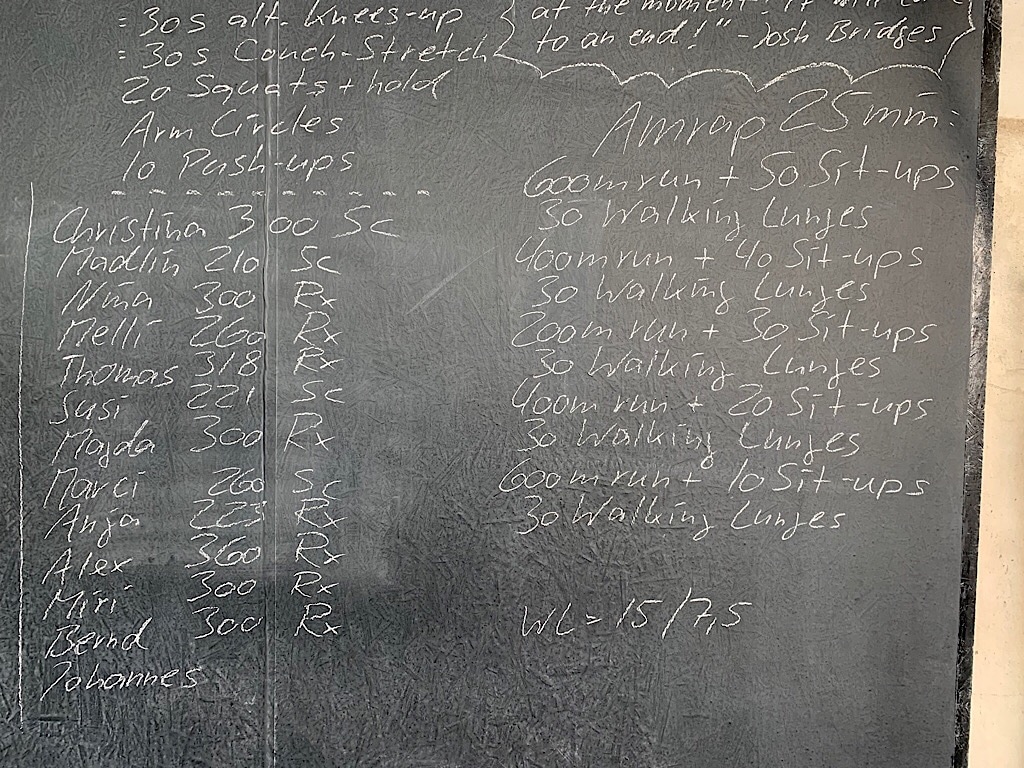 = 30s alt. Knees-up
= 30s Couch-Stretch
20 Squats + hold
Arm Circles
10 Push-ups
- - - - - - - - - - - -
Christina 300 Sc
Madlin 210 Sc
Nina 300 Rx
Melli 260 Rx
Thomas 318 Rx
Susi 221 Sc
Magda 300 Rx
Marci 260 Sc
Anja 223 Rx
Alex 360 Rx
Miri 300 Rx
Bernd 300 Rx
Johannes
at the moment. It will
to an end!" - Josh Bridges
Amrap 25 min.
600m run + 50 Sit-ups
30 Walking Lunges
400m run + 40 Sit-ups
30 Walking Lunges
200m run + 30 Sit-ups
30 Walking Lunges
400m run + 20 Sit-ups
30 Walking Lunges
600m run + 10 Sit-ups
30 Walking Lunges
WL = 15/7,5